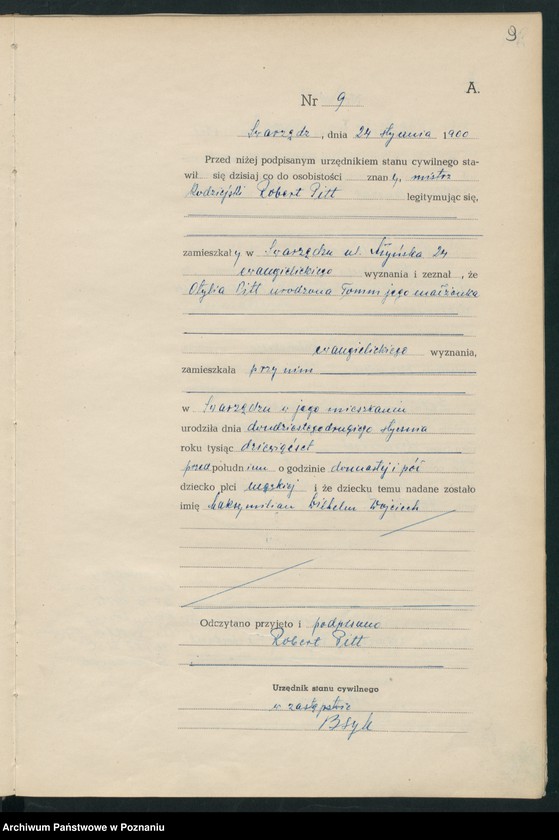 9
A.
Nr 9
Swarzędz, dnia 24 stycznia 1900
Przed niżej podpisanym urzędnikiem stanu cywilnego sta-
wił się dzisiaj co do osobistości znany, mistrz
Robert Pitt legitymując się,
zamieszkały w Swarzędzu ul. 24
ewangielickiego wyznania i zeznał, że
Otylia Pitt urodzona Tomm jego małżonka
ewangielickiego wyznania,
zamieszkała przy nim
w Swarzędzu w jego mieszkaniu
urodziła dnia dwudziestegodrugiego stycznia
roku tysiąc dziewięćset
przedpołudniem o godzinie dwunastej i pół
dziecko płci męzkiej i że dziecku temu nadane zostało
imię Maksymilian Wilhelm Wojciech
Odczytano przyjęto i podpisano
Robert Pitt
Urzędnik stanu cywilnego
w zastępstwie
Archiwum Państwowe w Poznaniu